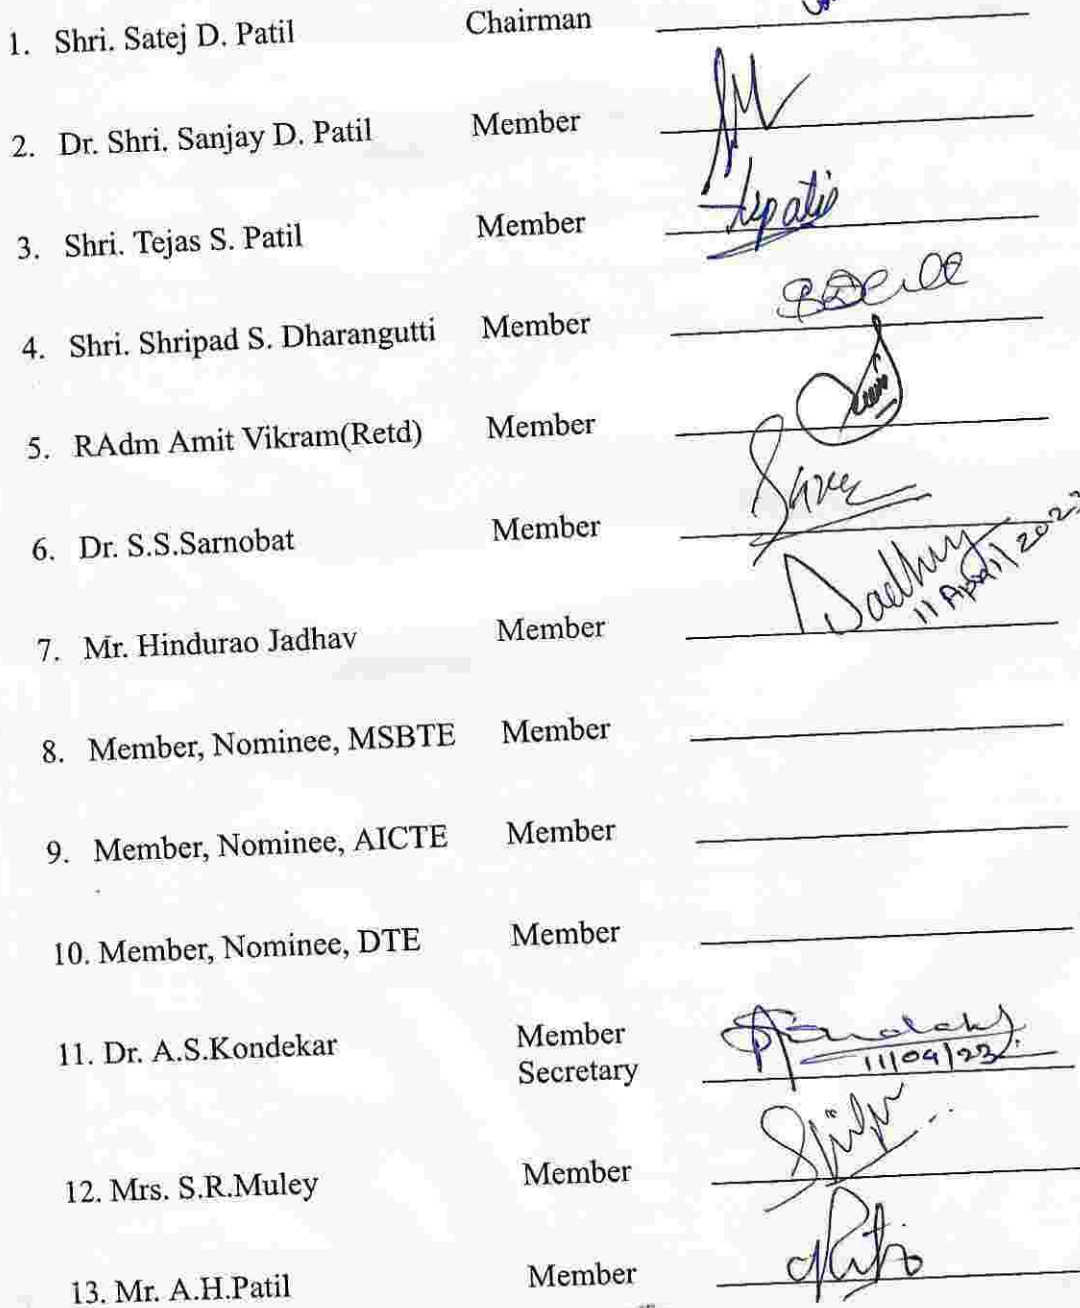 1. Shri. Satej D. Patil Chairman
2. Dr. Shri. Sanjay D. Patil Member
3. Shri. Tejas S. Patil Member
4. Shri. Shripad S. Dharangutti Member
5. RAdm Amit Vikram(Retd) Member
6. Dr. S.S.Sarnobat Member
7. Mr. Hindurao Jadhav Member
11 April 2023
8. Member, Nominee, MSBTE Member
9. Member, Nominee, AICTE Member
10. Member, Nominee, DTE Member
11. Dr. A.S.Kondekar Member
Secretary
11/04/23
12. Mrs. S.R.Muley Member
13. Mr. A.H.Patil Member